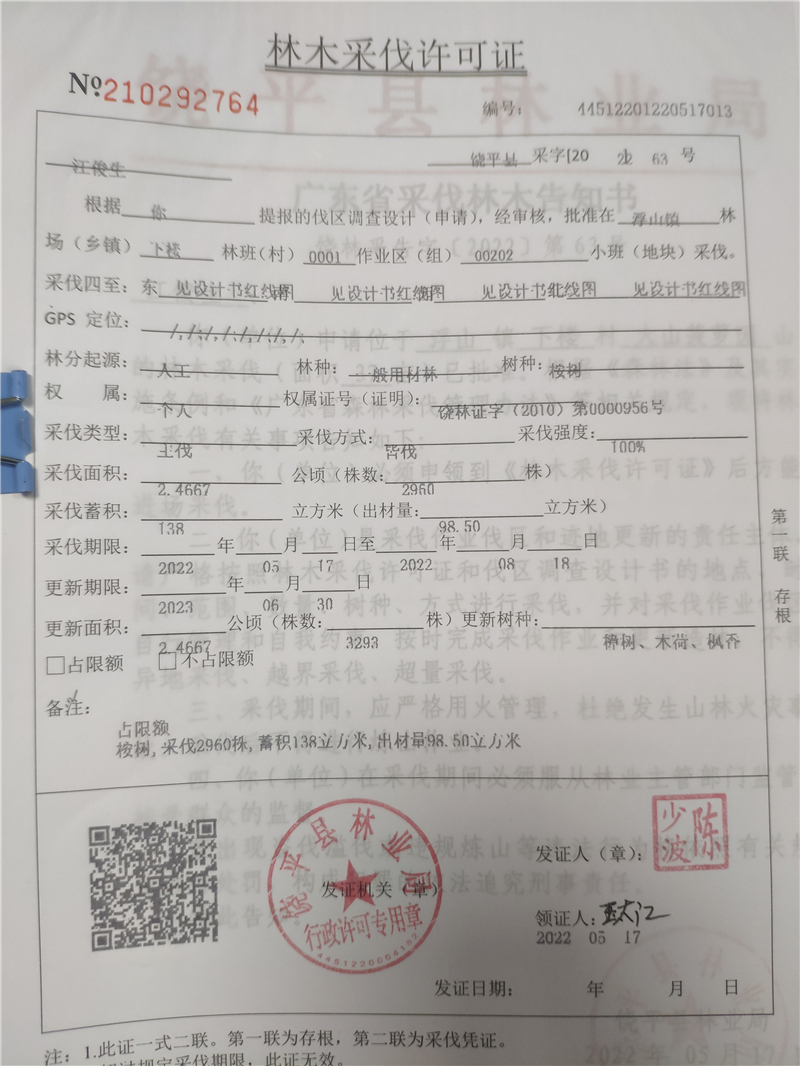 林木采伐许可证
№210292764
编号： 44512201220517013
汪俊生 饶平县 采字[20 22 63 号
根据 你 提报的伐区调查设计（申请），经审核，批准在 浮山镇 林
场（乡镇） 下楼 林班（村） 0001 作业区（组） 00202 小班（地块）采伐。
采伐四至： 东 见设计书红线图 南 见设计书红线图 见设计书红线图 北 见设计书红线图
GPS 定位： /,/;/,/;/,/;/,/;
林分起源： 人工 林种： 一般用材林 树种： 桉树
权 属： 个人 权属证号（证明）： 饶林证字（2010）第0000956号
采伐类型： 主伐 采伐方式： 皆伐 采伐强度： 100%
采伐面积： 2.4667 公顷（株数： 2960 株）
采伐蓄积： 138 立方米（出材量： 98.50 立方米）
采伐期限： 2022 年 05 月 17 日至 2022 年 08 月 18 日
更新期限： 2023 年 06 月 30 日
更新面积： 2.4667 公顷（株数： 3293 株）更新树种： 樟树、木荷、枫香
□占限额 □不占限额
备注：
占限额
桉树,采伐2960株,蓄积138立方米,出材量98.50立方米
第一联 存根
饶平县林业局
行政许可专用章
发证机关（章）
发证人（章）： 陈少波
领证人：
2022 05 17
发证日期： 年 月 日
注： 1.此证一式二联。第一联为存根，第二联为采伐凭证。
采伐期限，此证无效。